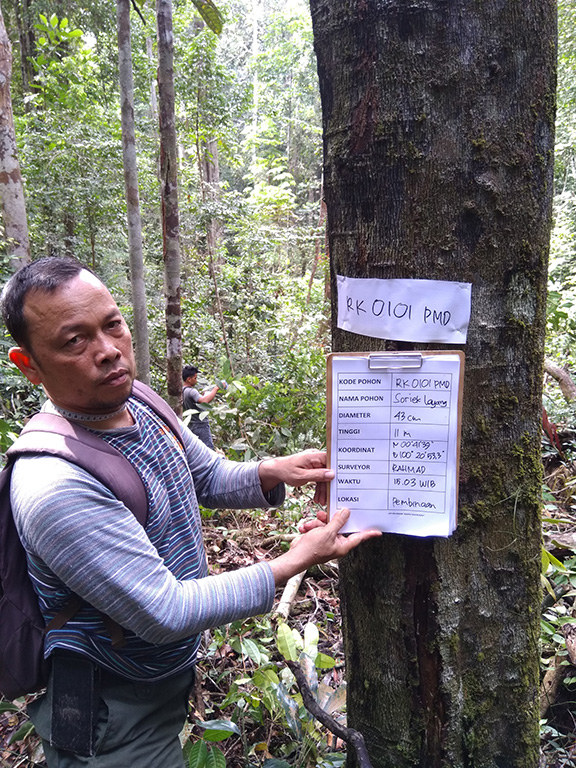 RK 0101 PMD
KODE POHON RK 0101 PMD
NAMA POHON Soriek Layang
DIAMETER 43 cm
TINGGI 11 m
KOORDINAT N 00°41'39"
E 100° 20'53.3"
SURVEYOR RAHMAD
WAKTU 15.03 WIB
LOKASI Pembinaan